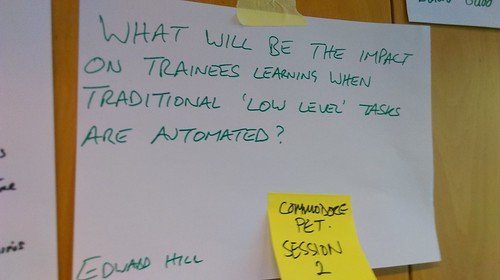 WHAT WILL BE THE IMPACT
ON TRAINEES LEARNING WHEN
TRADITIONAL 'LOW LEVEL' TASKS
ARE AUTOMATED?
EDWARD HILL
COMMODORE
PET.
SESSION
2